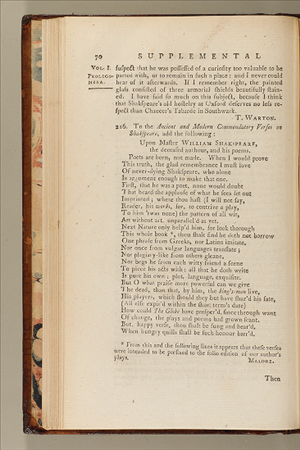 70 SUPPLEMENTAL
VOL. I.
PROLEGO-
MENA.
suspect that he was possessed of a curiosity too valuable to be
parted with, or to remain in such a place: and I never could
hear of it afterwards. If I remember right, the painted
glass consisted of three armorial shields beautifully stain-
ed. I have said so much on this subject, because I think
that Shakspeare's old hostelry at Oxford deserves no less re-
spect than Chaucer's Tabarde in Southwark.
T. WARTON.
216. To the Ancient and Modern Commendatory Verses on
Shakspeare, add the following:
Upon Master WILLIAM SHAKSPEARE,
the deceased authour, and his poems.
Poets are born, not made. When I would prove
This truth, the glad remembrance I must love
Of never-dying Shakspeare, who alone
Is argument enough to make that one.
First, that he was a poet, none would doubt
That heard the applause of what he sees set out
Imprinted; where thou hast (I will not say,
Reader, his works, for, to contrive a play,
To him 'twas none) the pattern of all wit,
Art without art, unparallel'd as yet.
Next Nature only help'd him, for look thorough
This whole book *, thou shalt find he doth not borrow
One phrase from Greeks, nor Latins imitate,
Nor once from vulgar languages translate;
Nor plagiary-like from others gleane,
Nor begs he from each witty friend a scene
To piece his acts with: all that he doth write
Is pure his own; plot, language, exquisite.
But O what praise more powerful can we give
The dead, than that, by him, the king's men live,
His players, which should they but have shar'd his fate,
(All else expir'd within the short term's date)
How could The Globe have prosper'd, since through want
Of change, the plays and poems had grown scant.
But, happy verse, thou shalt be sung and hear'd,
When hungry quills shall be such honour barr'd.
* From this and the following lines it appears that these verses
were intended to be prefixed to the folio edition of our author's
plays. MALONE.
Then